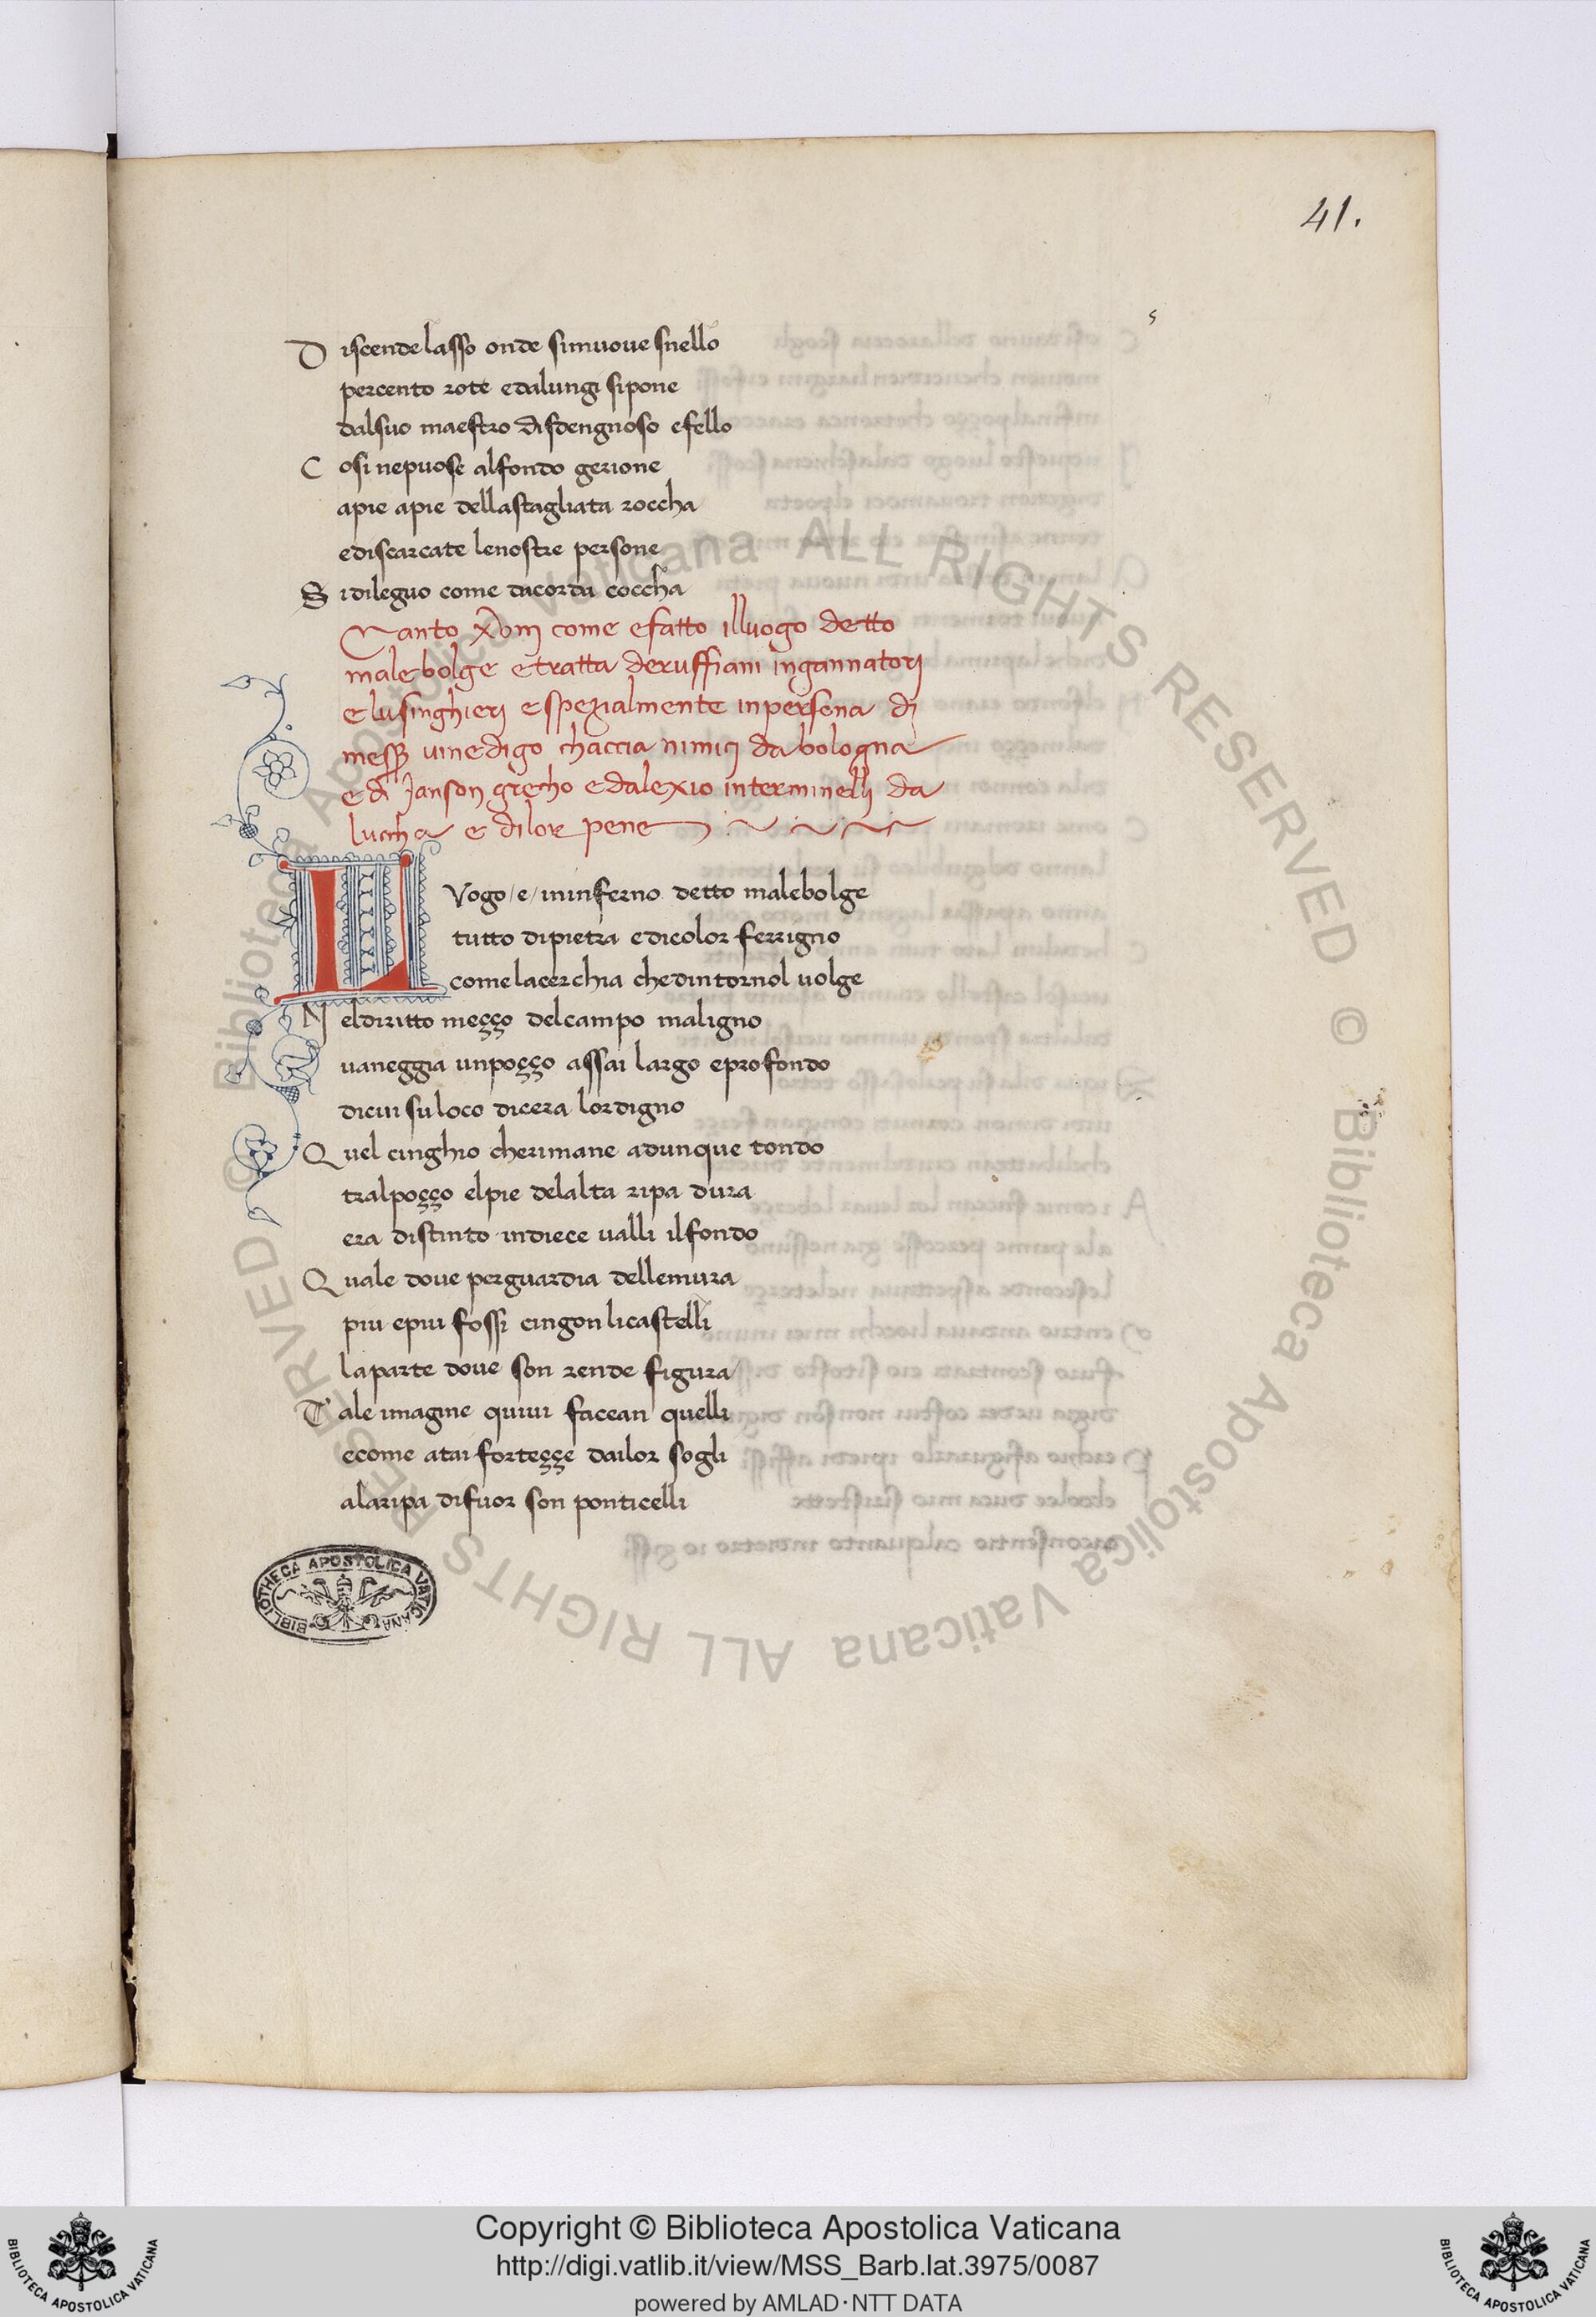 41.
D iscende lasso onde simuove snello
percento rote edalungi sipone
dalsuo maestro disdengnoso efello
C osi nepuose alfondo gerione
apie apie dellastagliata roccha
ediscarcate lenostre persone
S idileguo come dacorda coccha
Canto xviij come efatto illuogo detto
malebolge etratta deruffiani ingannatorj
elusinghierj espezialmente inpersona dj
messer vinedigo chaccia nimicj dabologna
edi Janson grecho edalexio interminellj da
lucch a e dilor pene
L Vogo /e/ ininferno detto malebolge
tutto dipietra edicolor ferrigno
comelacerchia chedintornol uolge
N eldiritto meçço delcampo maligno
uaneggia unpoçço assai largo eprofondo
dicui suloco dicera lordigno
Q uel cinghio cherimane adunque tondo
tralpoçço elpie delalta ripa dura
era distinto indiece ualli ilfondo
Q uale doue perguardia dellemura
piu epiu fossi cingon licastelli
laparte doue son rende figura
T ale imagine quiui facean quelli
ecome atai forteççe dailor sogli
alaripa difuor son ponticelli
BIBLIOTHECA APOSTOLICA VATICANA
© Biblioteca Apostolica Vaticana ALL RIGHTS RESERVED
© Biblioteca Apostolica Vaticana ALL RIGHTS RESERVED
Copyright © Biblioteca Apostolica Vaticana
http://digi.vatlib.it/view/MSS_Barb.lat.3975/0087
powered by AMLAD·NTT DATA
BIBLIOTECA APOSTOLICA VATICANA
BIBLIOTECA APOSTOLICA VATICANA